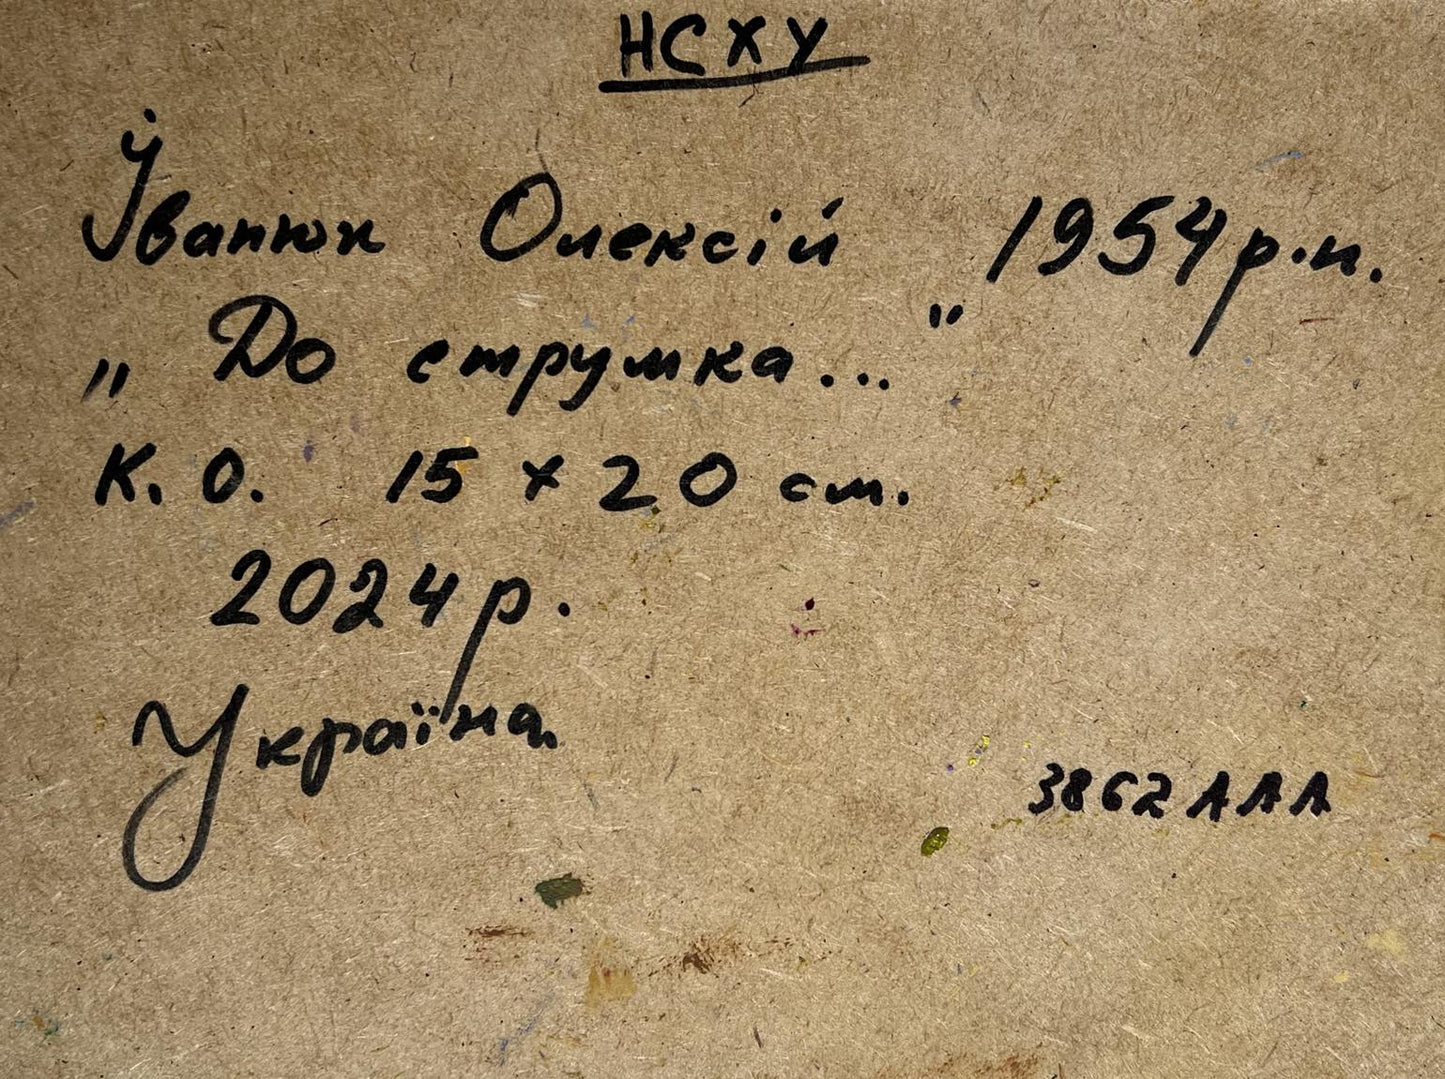 НСХУ
Іванюк Олексій 1954 р.н.
„До струмка..."
К. О. 15 x 20 см.
2024 р.
Україна
3862 ААА